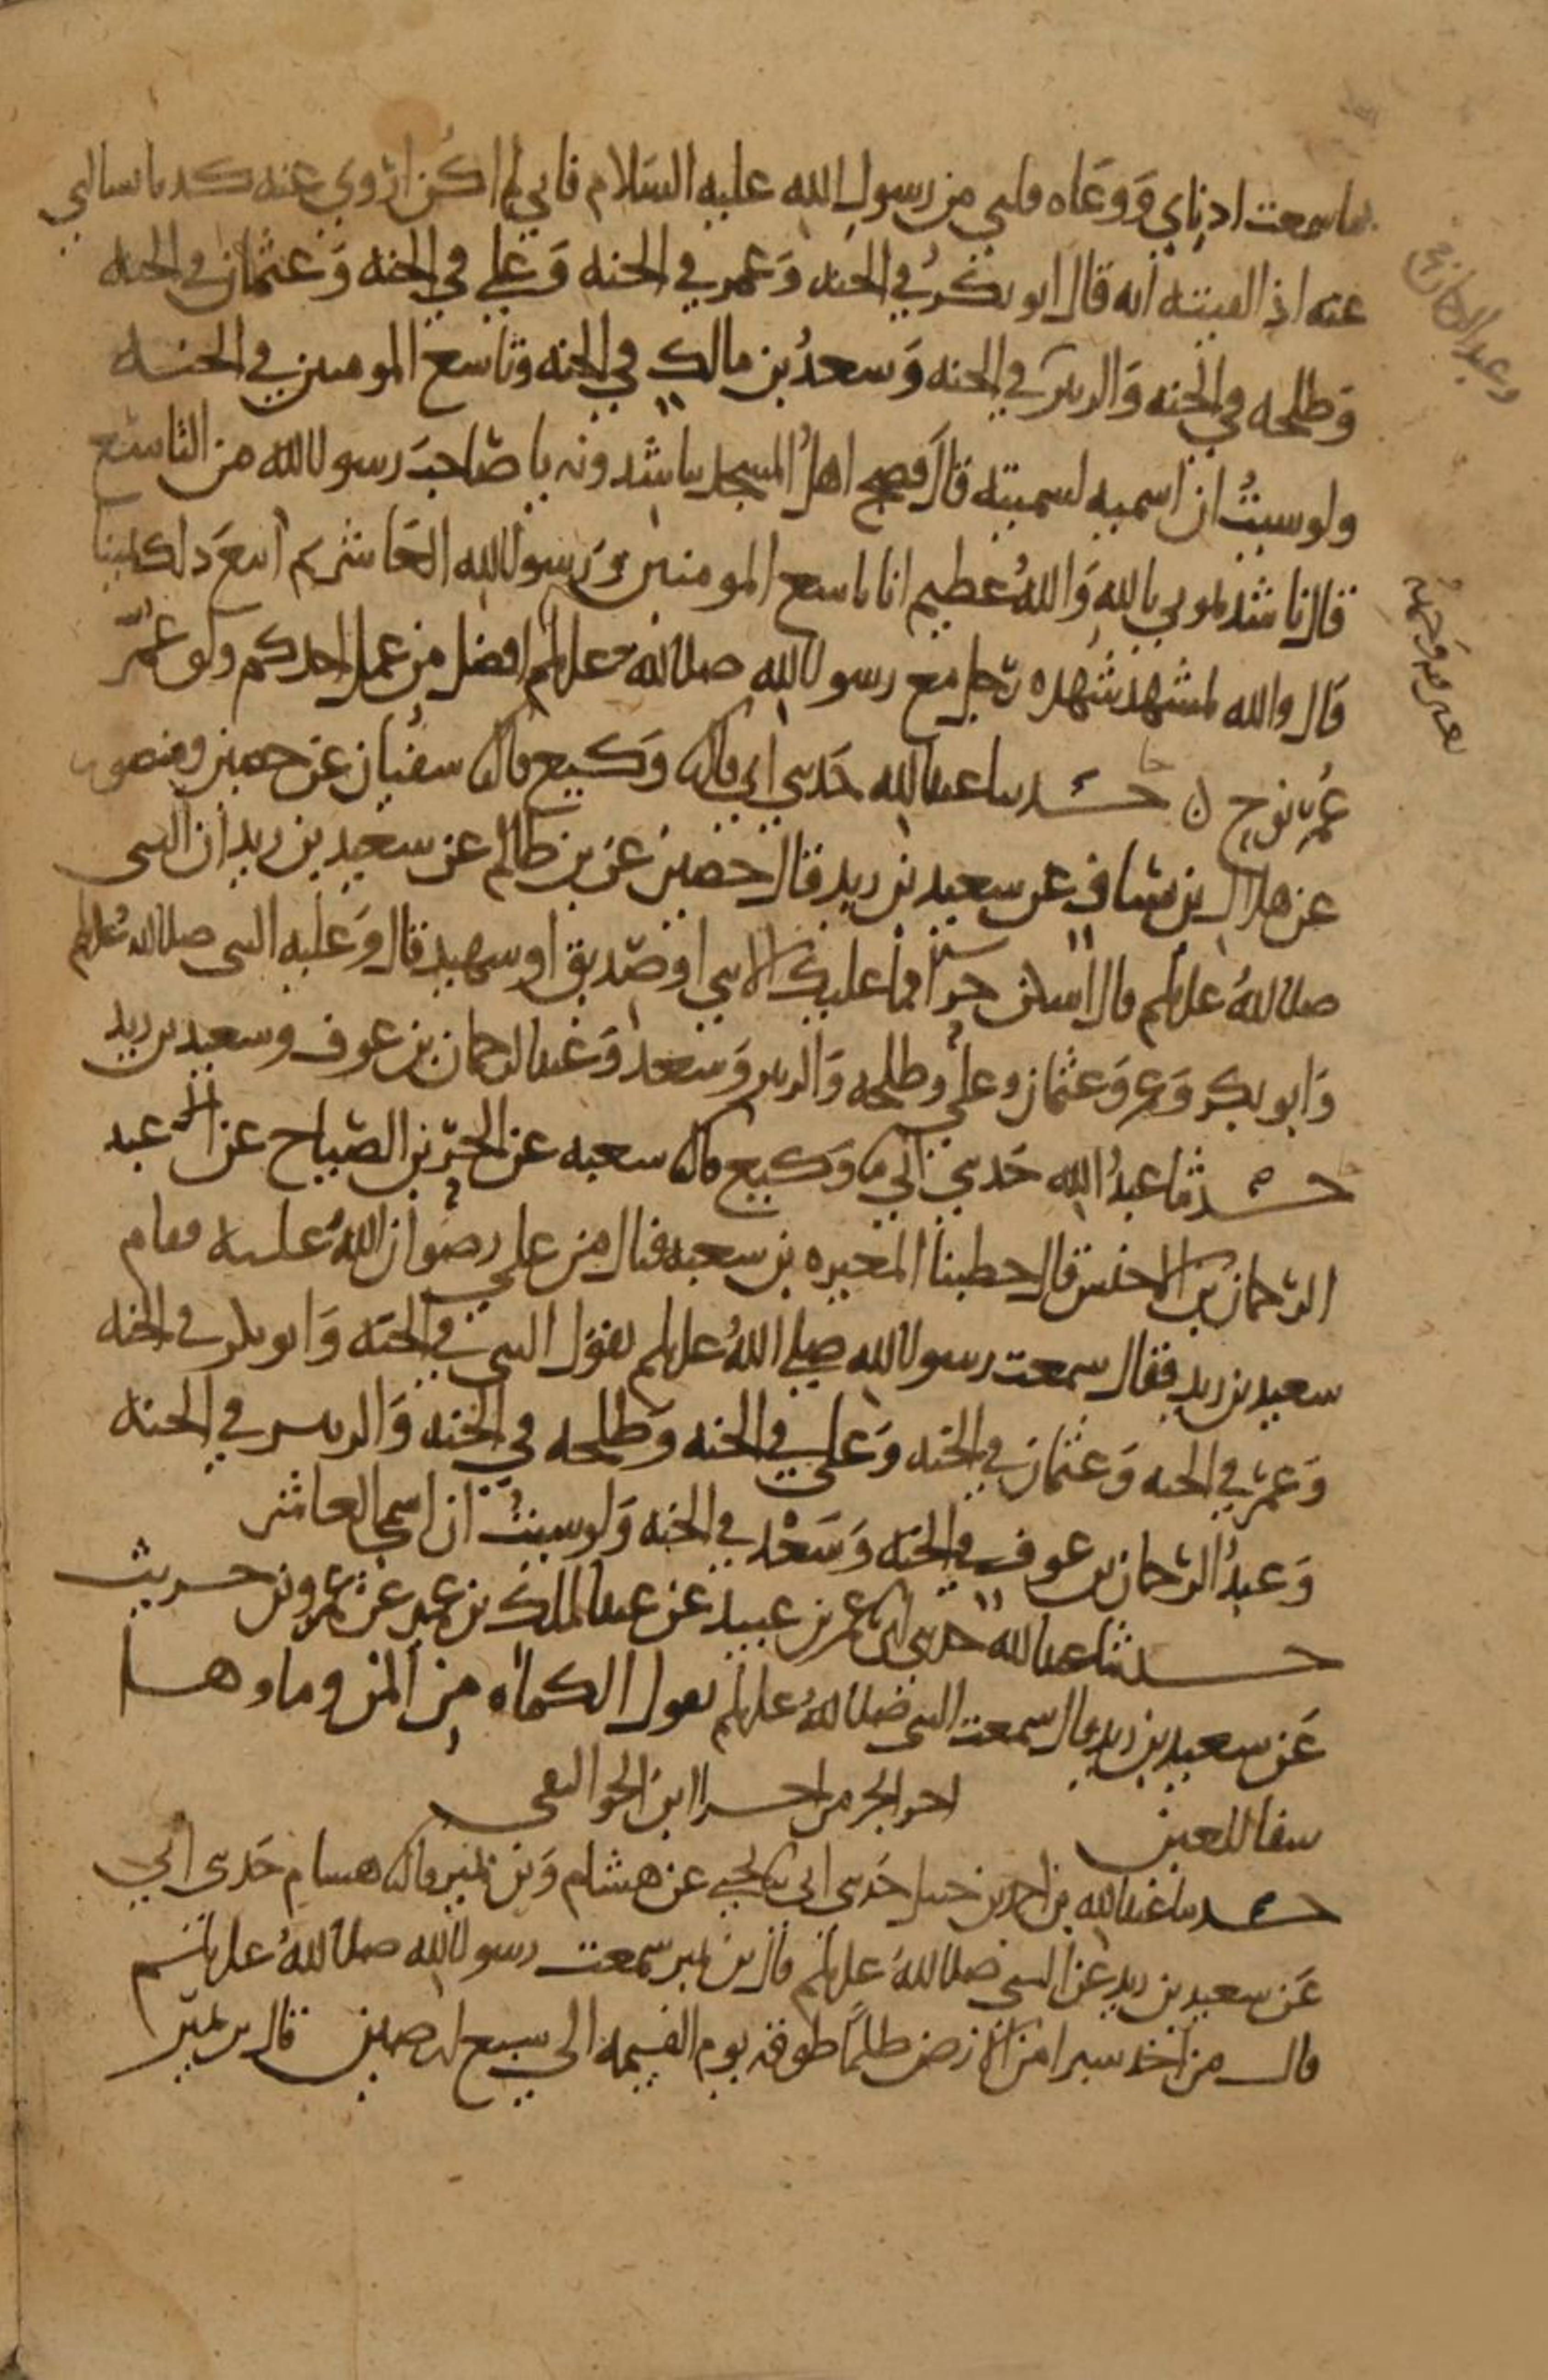 بما سمعت اذناي وَوعَاه قلبي من رسول الله عليه السلام فاني لم اكن اروي عنه كذبا يسالني
عنه اذا لقيته انه قال ابو بكر في الجنه وَعمر في الجنه وَعلي في الجنه وَعثمان في الجنه
وَطلحه في الجنه وَالزبير في الجنه وَسعدُ بن مالك في الجنه وتاسع المومنين في الجنه
ولو شيتُ ان اسميه لسميته قال فضج اهلُ المسجد يناشدونه يا صاحبَ رسول الله من التاسع
قال ناشدتموني بالله وَاللهُ عظيم انا تاسع المومنين وَرسول الله العَاشر ثم اتبعَ ذلك يمينا
قال والله لمشهد شهده رجل مع رسول الله صلى الله عليه وسلم افضل من عمل احدكم ولو عُمِّر
عُمر نوح ن حدثنا عبد الله حَدثني ابي قال وَكيع قال سفيان عن حصين ومنصور
عن هلال بن يساف عن سعيد بن زيد قال حصين عن بن ظالم عن سعيد بن زيد ان النبي
صلى اللهُ عليه وسلم قال اسكن حرا فما عليك الا نبي او صديق او شهيد قال وَعليه النبي صلى اللهُ عليه وسلم
وَابو بكر وَعمر وَعثمان وعلي وطلحه وَالزبير وَسعد وَعبد الرحمان بن عوف وسعيد بن زيد
حدثنا عبدُ الله حَدثني ابي وَكيع قال شعبه عن الحرّ بن الصيّاح عن عبد
الرحمان بن الاخنس قال خطبنا المغيره بن شعبه فنال من علي رضوان اللهُ عليه فقام
سعيد بن زيد فقال سمعت رسول الله صلى اللهُ عليه وسلم يقول النبي في الجنه وَابو بكر في الجنه
وَعمر في الجنه وَعثمان في الجنه وَعلي في الجنه وَطلحه في الجنه وَالزبير في الجنه
وَعبدُ الرحمان بن عوف في الجنه وَسَعْد في الجنه وَلو شيتُ ان اسمي العاشر
حدثنا عبد الله حدثني ابي عمر بن عبيد عن عبد الملك بن عمير عن عمرو بن حريث
عَن سعيد بن زيد قال سمعت النبي صلى اللهُ عليه وسلم يقول الكماه من المن وماوها
شفا للعين
اخر الجز من اجزا ابن
حدثنا عبد الله بن احمد بن حنبل حَدثني ابي يحيى عن هشام وَبن نمير قال هشام حَدثني ابي
عَن سعيد بن زيد عن النبي صلى اللهُ عليه وسلم قال بن نمير سمعت رسول الله صلى اللهُ عليه وسلم
قال من اخذ شبرا من الارض ظلمًا طوقه يوم القيمه الى سبع ارضين قال بن نمير